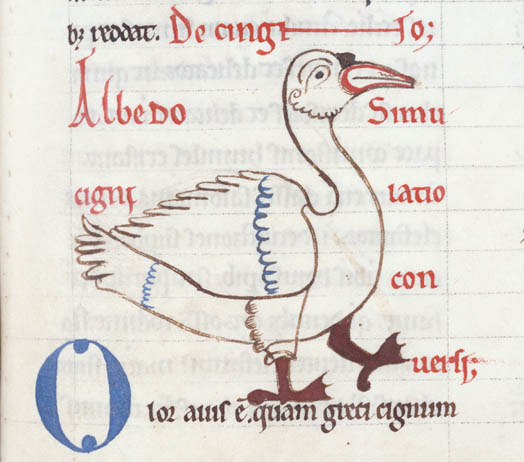 bꝫ reddat. De cingno;
Albedo Simu
cigni latio
con
uersi;
Olor auis ē. quam greci cignum